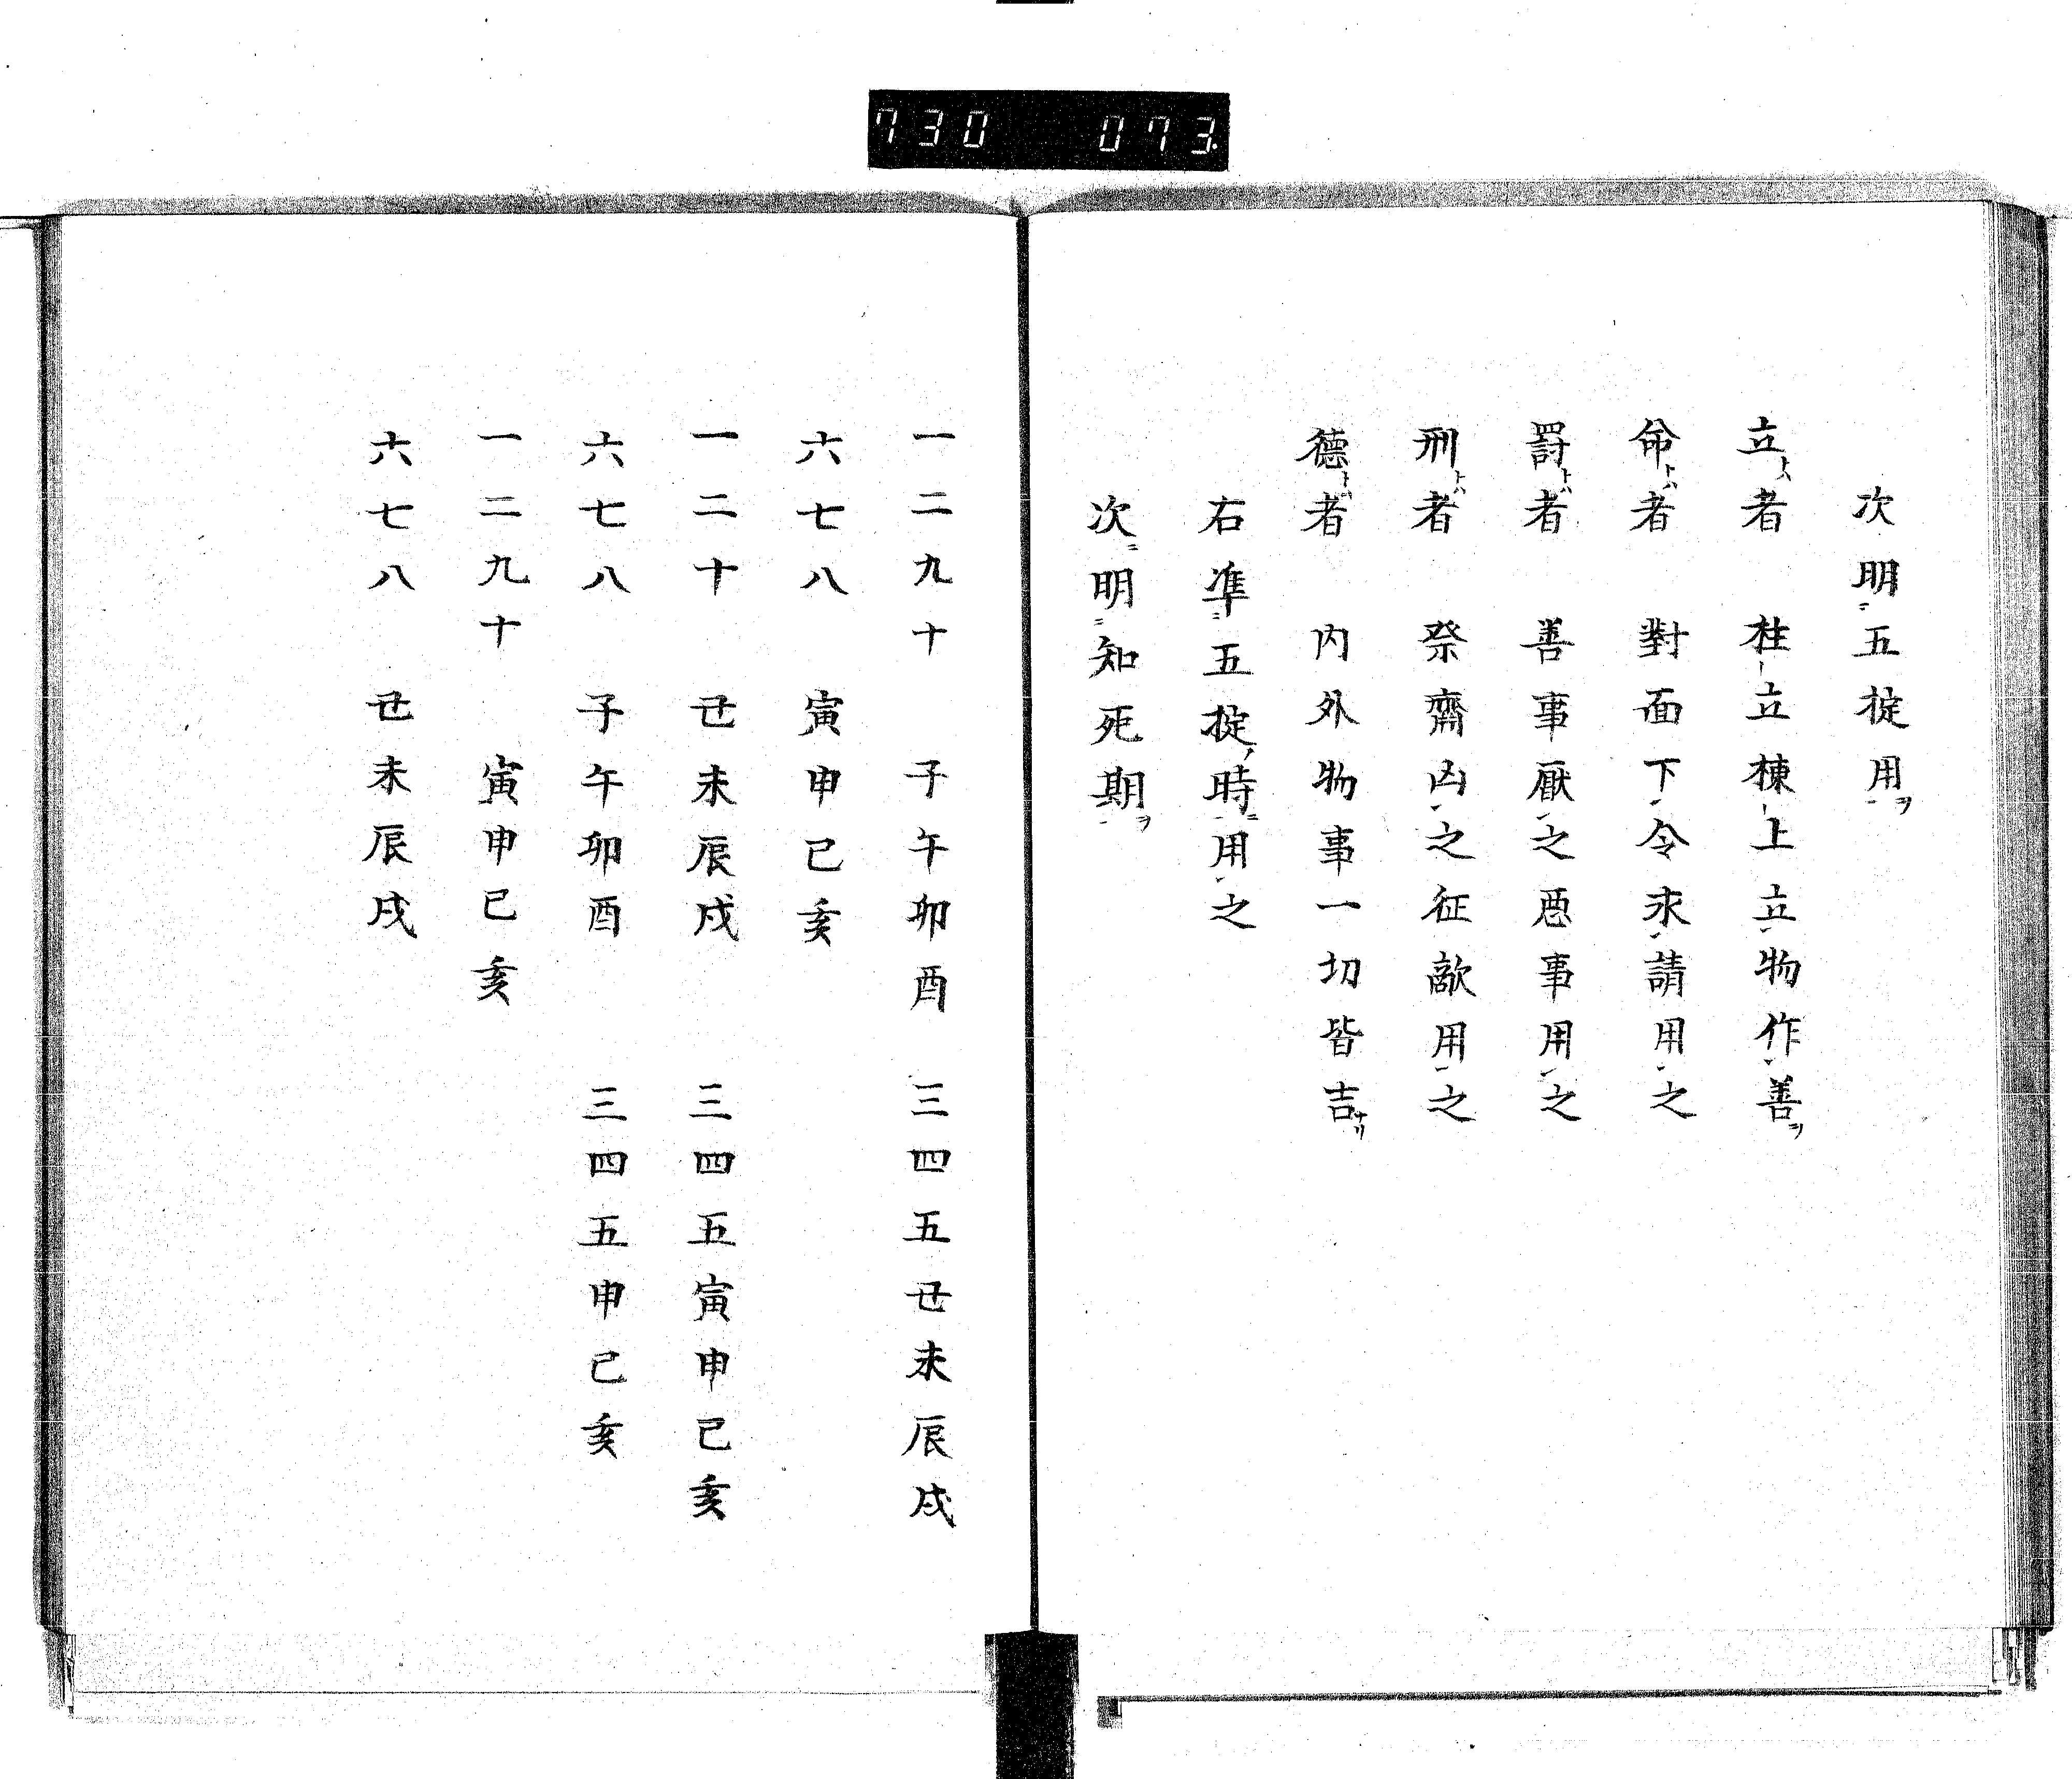 730 073
次明ニ五掟用ヲ
立トハ者 柱立棟上立物作善ヲ
命トハ者 對面下令求請用之
罸トハ者 善事厭之悪事用之
刑トハ者 祭齋凶之征敵用之
德トハ者 内外物事一切皆吉ナリ
右準五掟ノ時ニ用之
次ニ明ニ知死期ヲ
一二九十 子午卯酉 三四五丑未辰戌
六七八 寅申巳亥
一二十 丑未辰戌 三四五寅申巳亥
六七八 子午卯酉 三四五申巳亥
一二九十 寅申巳亥
六七八 丑未辰戌